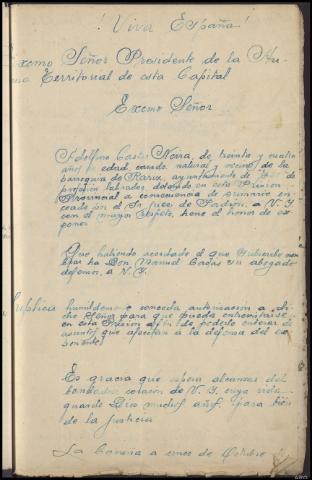 ¡Viva España!
Excmo Señor Presidente de la Au-
Territorial de esta Capital
Excmo Señor
Adolfino Castro Neira, de treinta y cuatro
años de edad, casado, natural y vecino de la
parroquia de ayuntamiento de
profesión labrador detenido en esta Prisión
Provincial a consecuencia de sumario in-
coado por el Sr Juez de Padrón, a V. I
con el mayor respeto, tiene el honor de ex-
poner
Que habiendo acordado el que suscribe nom-
brar a Don Manuel Casas su abogado
defensor, a V. I.
Suplica humildemente conceda autorización a di-
cho Señor para que pueda entrevistarse
en esta Prisión a fin de poderlo enterar de
asuntos que afectan a la defensa del ex-
ponente
Es gracia que espera alcanzar del
bondadoso corazón de V. I. cuya vida
guarde Dios muchos años para bien
de la Justicia
La Coruña a once de Octubre